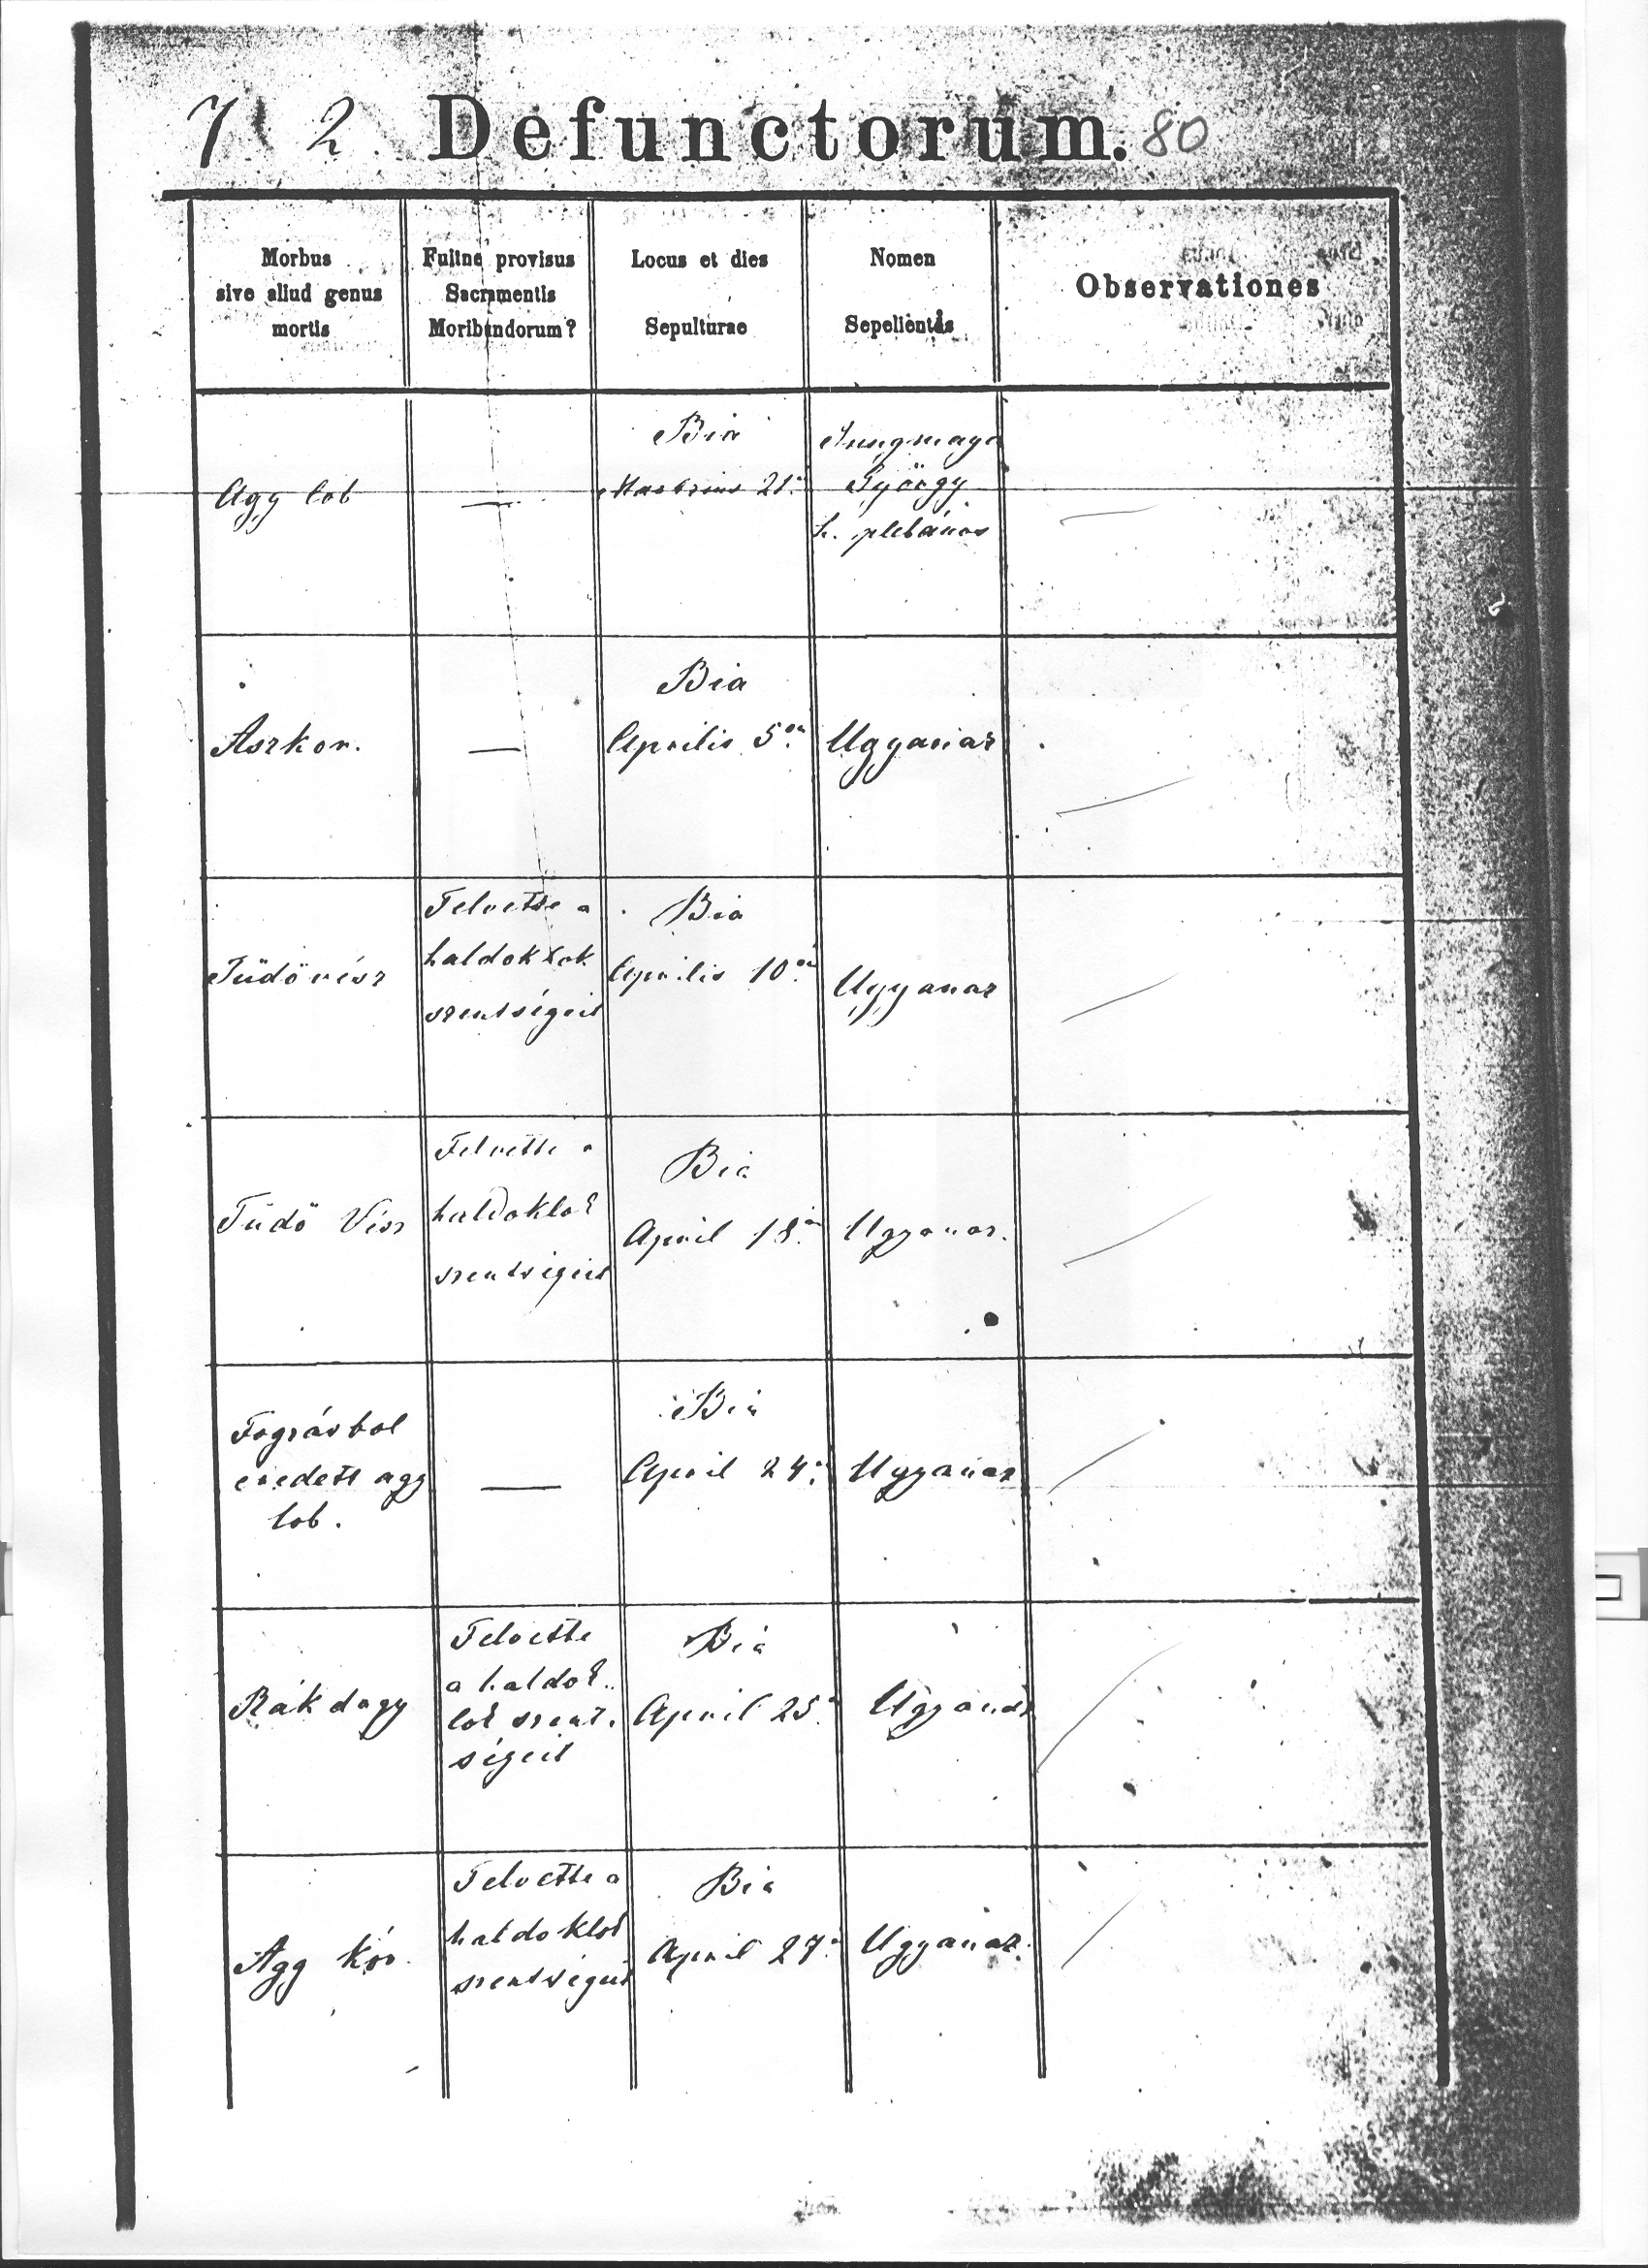 7 2 Defunctorum. 80
Morbus
sive aliud genus
mortis
Fuitne provisus
Sacramentis
Moribundorum?
Locus et dies
Sepulturae
Nomen
Sepelientis
Observationes
Agy lob
—
Bia
Martius 21.
Jungmayer
György
h. plebános
Aszkor.
—
Bia
Aprilis 5én
Ugyanaz
Tüdővész
Felvette a
haldoklok
szentségeit
Bia
Aprilis 10én
Ugyanaz
Tüdő Vész
Felvette a
haldoklok
szentségeit
Bia
April 18.
Ugyanaz.
Fogzásbol
eredett agy
lob.
—
Bia
April 24.
Ugyanaz
Rák dagy
Felvette
a haldok
lok szent.
ségeit
Bia
April 25.
Ugyanaz
Agg kór.
Felvette a
haldoklok
szentségeit
Bia
April 27.
Ugyanaz.